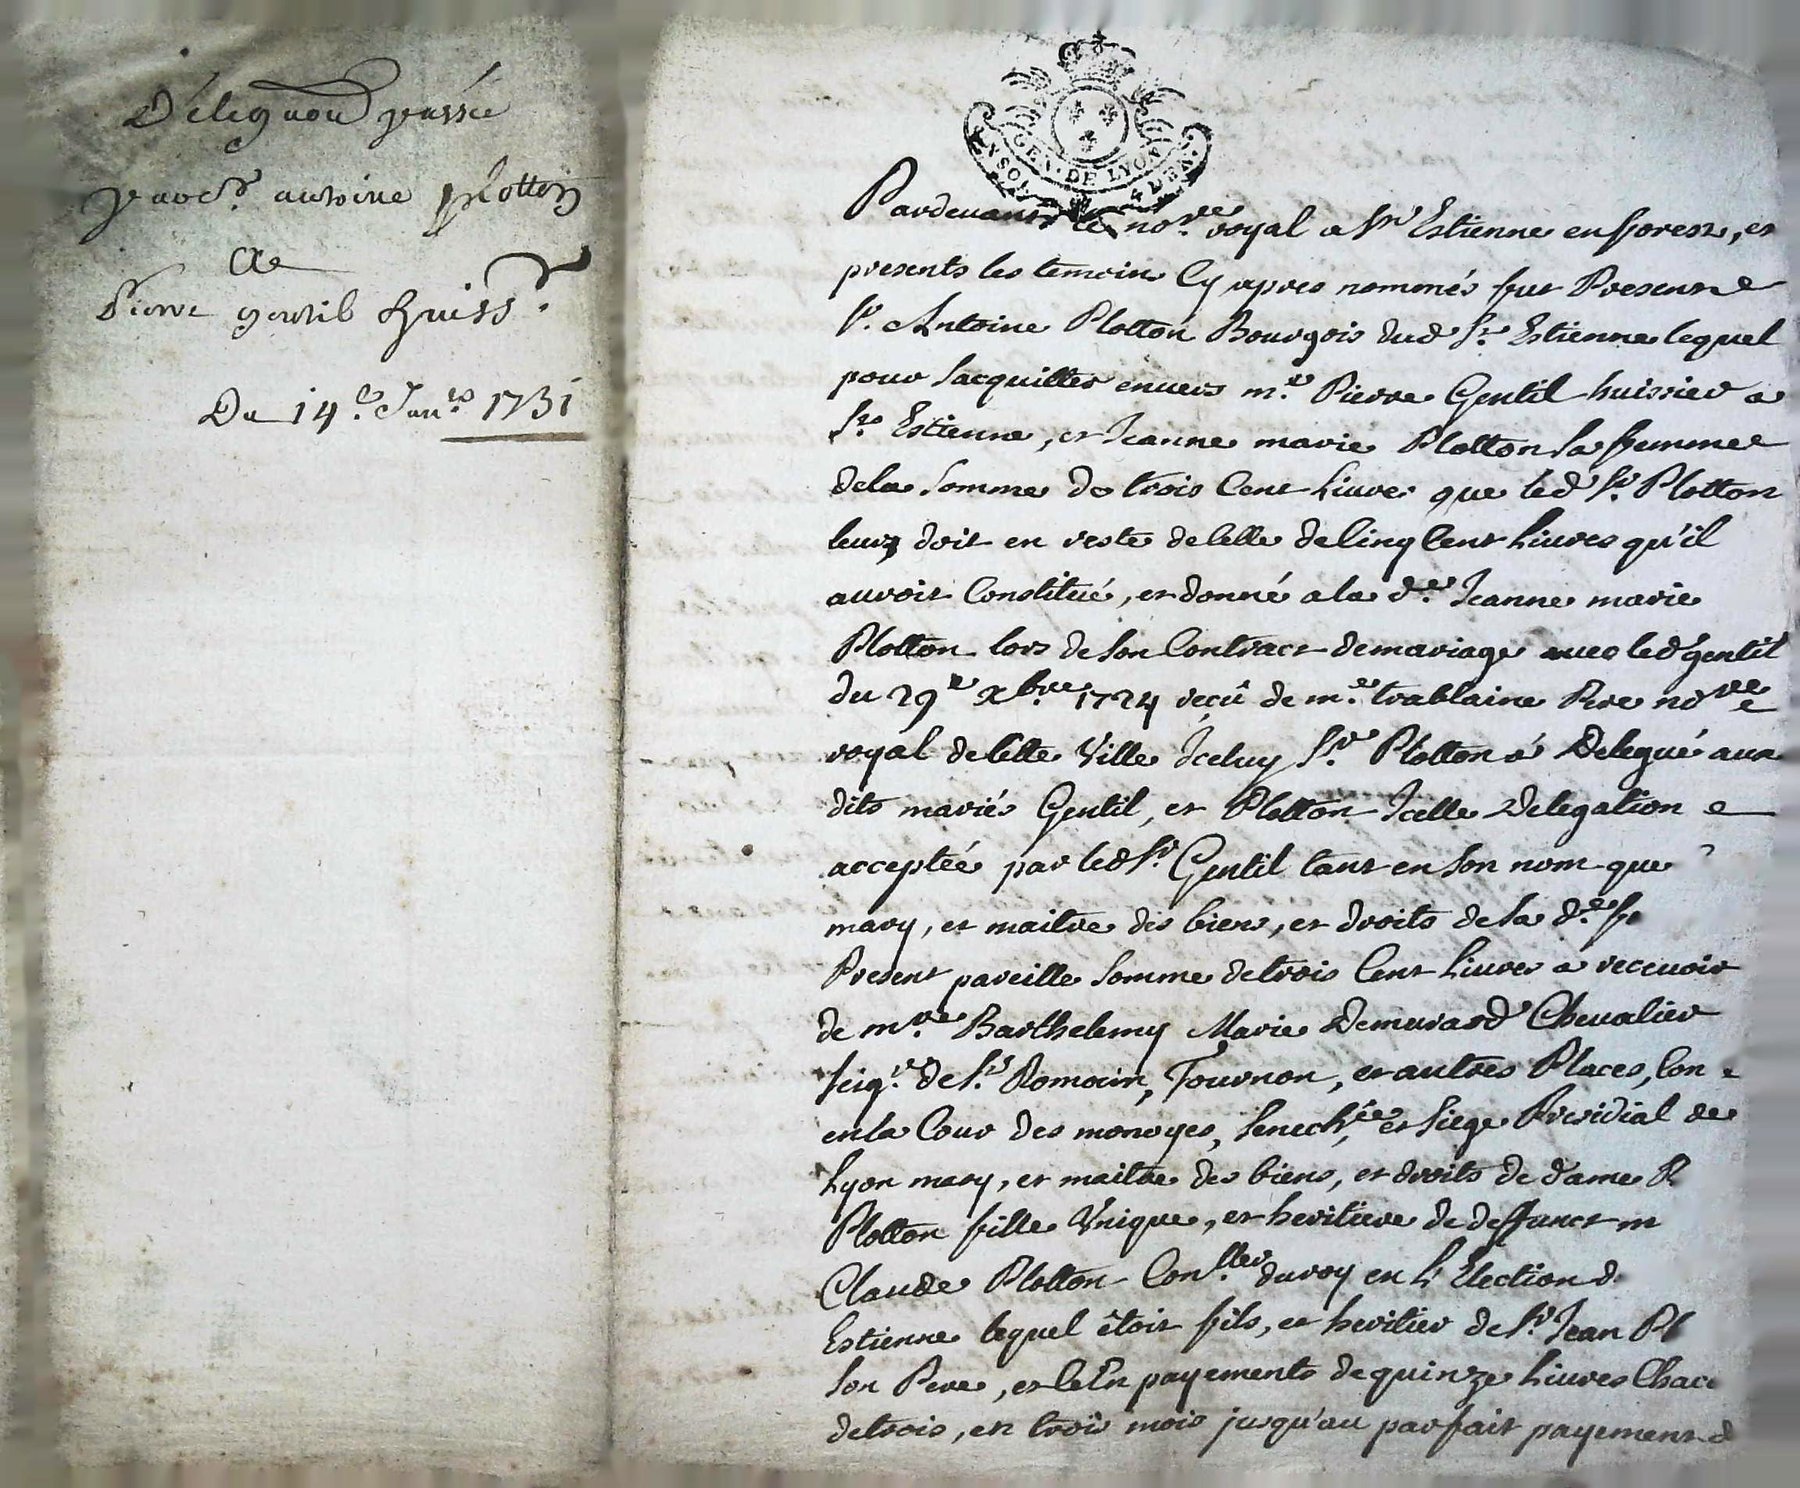 Délegaõn passée
par Sr. antoine plotton
A
Pierre gentil huissr.
Du 14e. Janr. 1731
GEN. DE LYON
Pardevant le nore. royal a St Estienne en forest, et
presents les temoins Cy apres nommés fut Present
Sr. Antoine Plotton Bourgois dud St. Estienne lequel
pour sacquitter envers me. Pierre Gentil huissier a
St. Estienne, et Jeanne marie Plotton sa femme
dela somme de trois Cent Livres que led Sr. Plotton
leurs doit en reste de Celle de Cinq Cent Livres qu'il
auroit Constitué, et donné a la de. Jeanne marie
Plotton lors de son Contract de mariage avec led gentil
du 29e Xbre. 1724 reçû de me. trablaine nore
royal de Cette Ville Iceluy Sr. Plotton à Delegué aux
dits mariés Gentil, et Plotton Icelle Delegation
acceptée par led Sr. Gentil tant en son nom que
mary, et maitre des biens, et droits de sa de. fe
Present pareille somme de trois Cent Livres a recevoir
de mre. Barthelemy Marie Demurard Chevalier
seigr. de St. Romain, Tournon, et autres Places, Con
en la Cour des monoyes, senechée, et siege Presidial de
Lyon mary, et maitre des biens, et droits de dame
Plotton fille Unique, et heritiere de deffunct m
Claude Plotton Conller. du roy en L'Election d
Estienne lequel étoit fils, et heritier de Sr. Jean Pl
son Pere, et Ce En payements de quinze Livres Chac
de trois, en trois mois jusqu'au parfait payement d